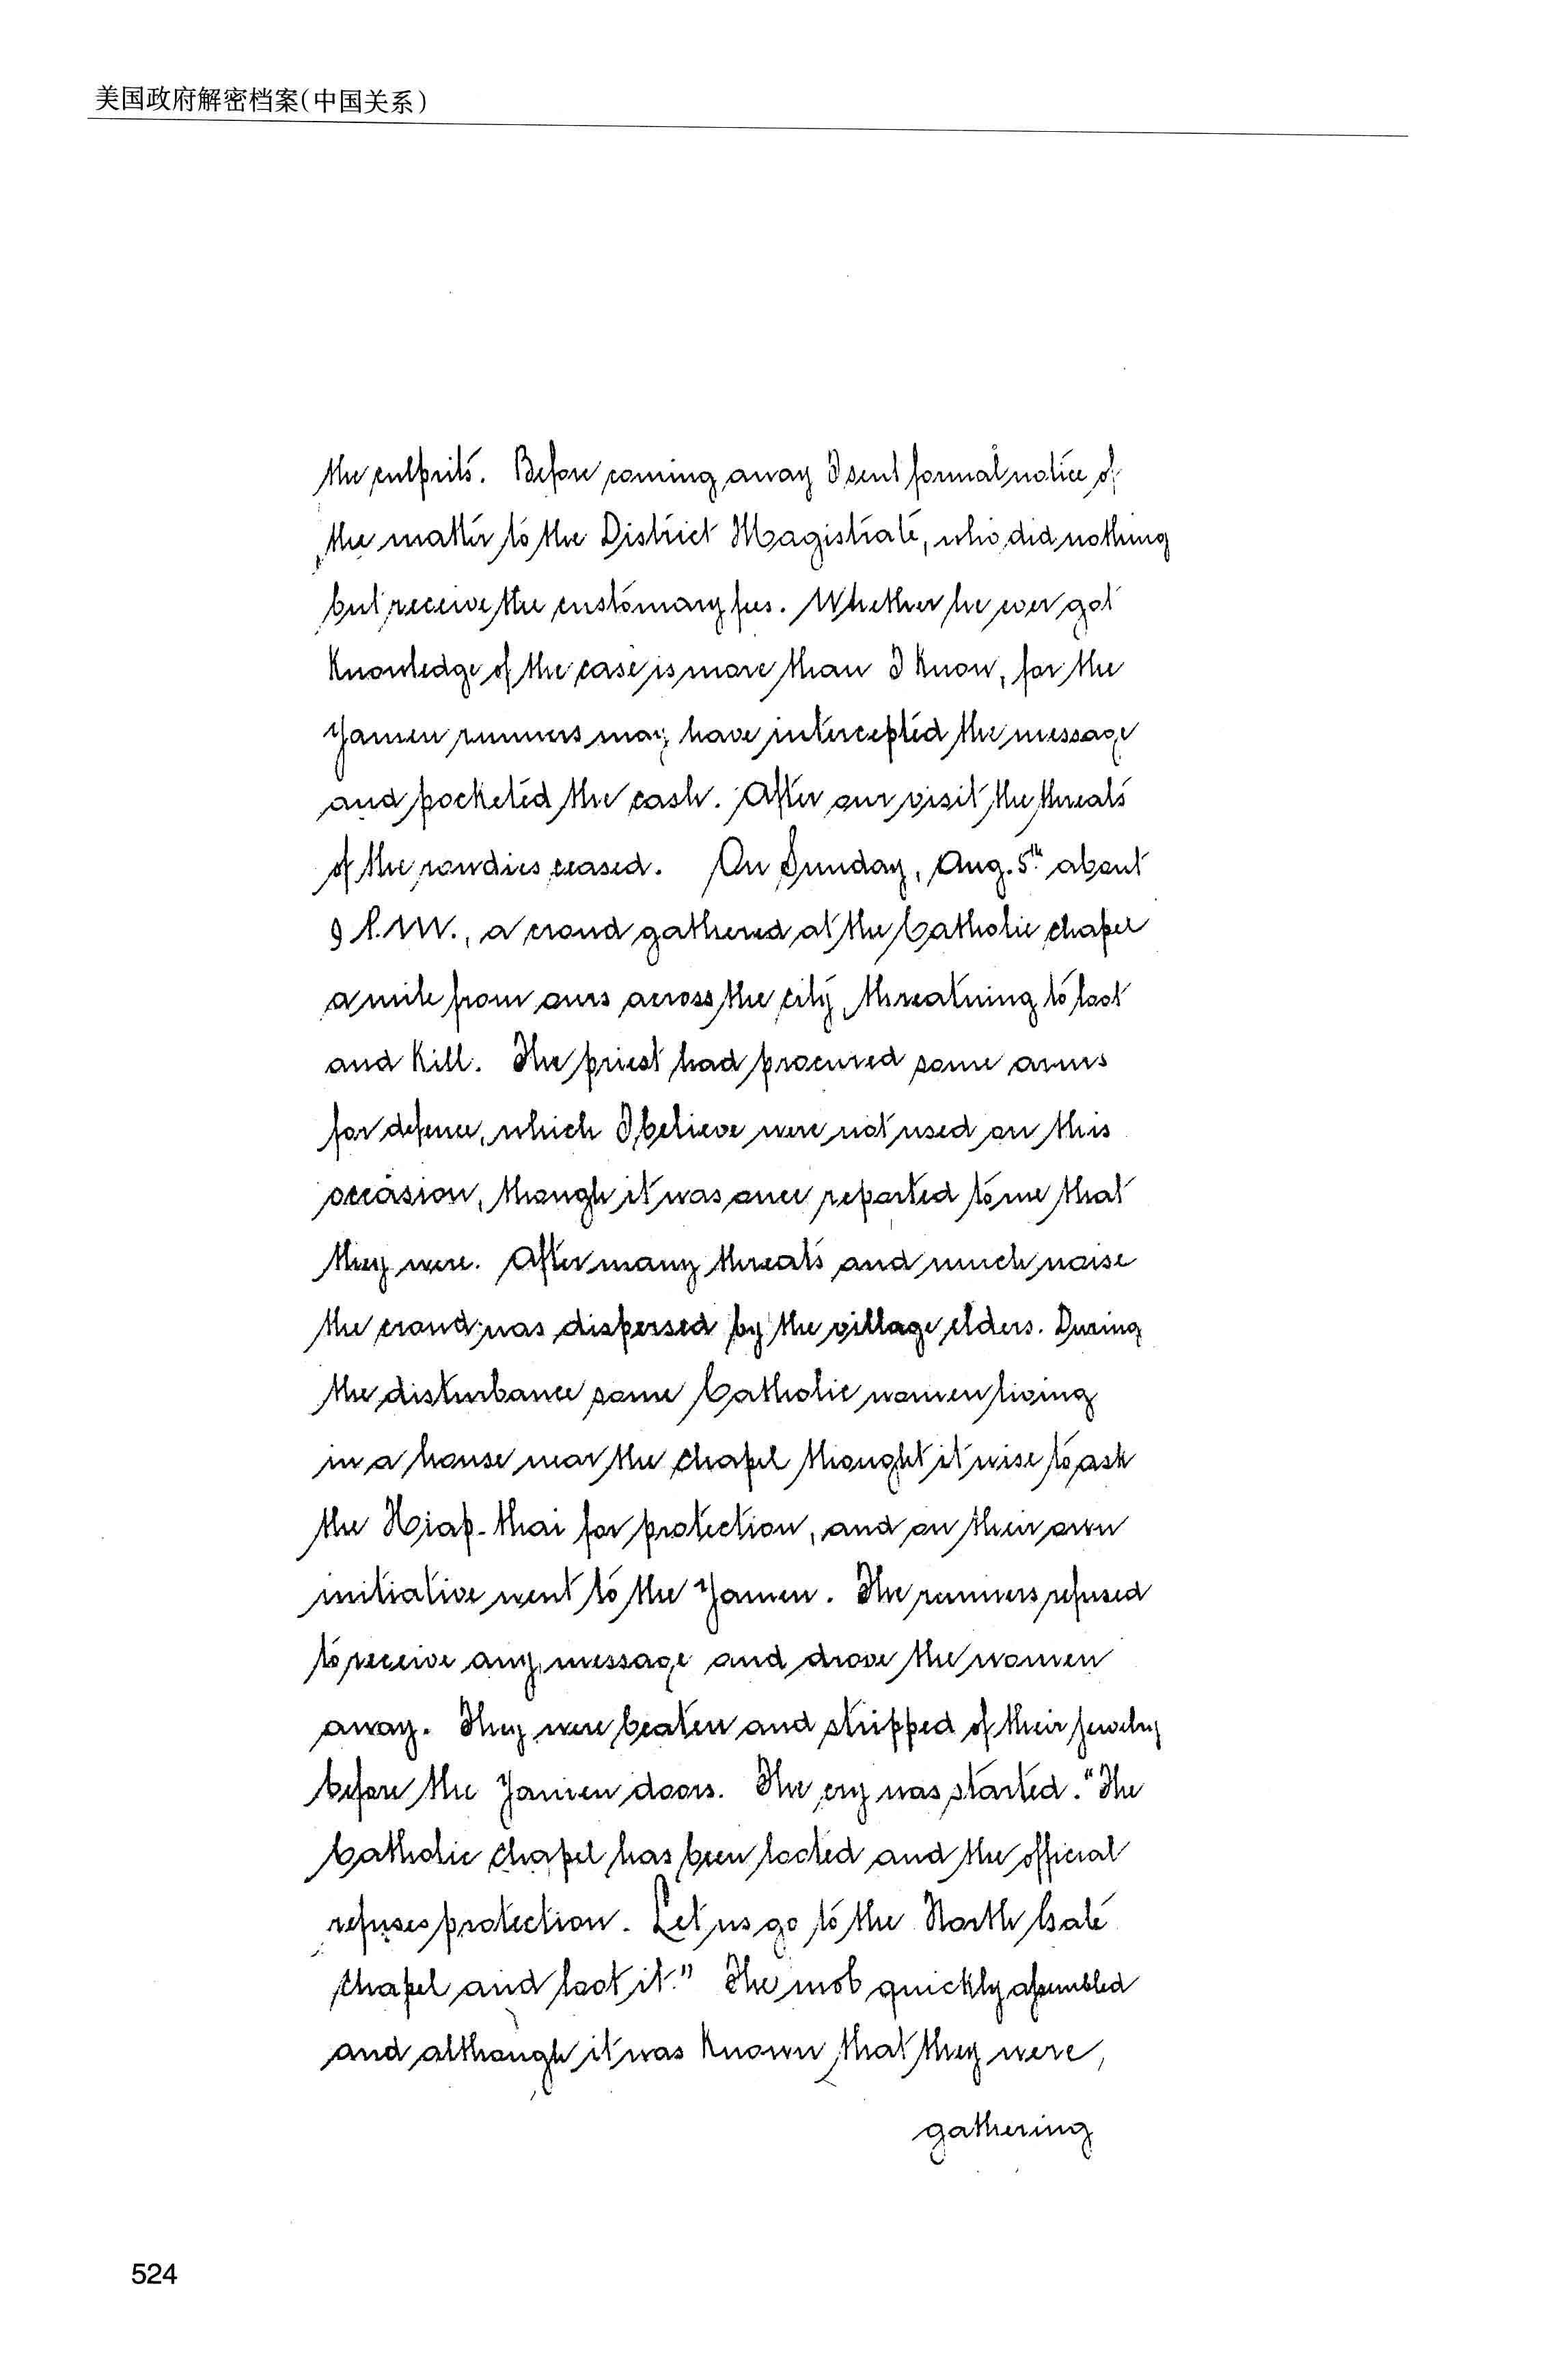 美国政府解密档案(中国关系)
the culprits. Before coming away I sent formal notice of
the matter to the District Magistrate, who did nothing
but receive the customary fees. Whether he ever got
knowledge of the case is more than I know, for the
Yamen runners may have intercepted the message
and pocketed the cash. After our visit the threats
of the rowdies ceased. On Sunday, Aug. 5th about
9 P.M., a crowd gathered at the Catholic chapel
a mile from ours across the city, threatning to loot
and kill. The priest had procured some arms
for defence, which I believe were not used on this
occasion, though it was once reported to me that
they were. After many threats and much noise
the crowd was dispersed by the village elders. During
the disturbance some Catholic women living
in a house near the chapel thought it wise to ask
the Hiap-thai for protection, and on their own
initiative went to the Yamen. The runners refused
to receive any message and drove the women
away. They were beaten and stripped of their jewelry
before the Yamen doors. The cry was started. "The
Catholic chapel has been looted and the official
refuses protection. Let us go to the North Gate
chapel and loot it." The mob quickly assembled
and although it was known that they were,
gathering
524